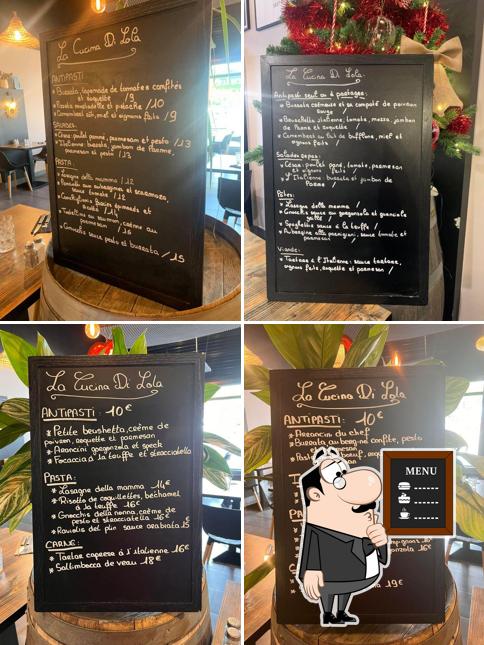 La Cucina Di Lola
ANTIPASTI
* Burrata, tapenade de tomates confites
et roquette /9
* Camembert rôti, miel et oignons frits /9
SALADES
* César: poulet panné, parmesan et pesto /13
* Italienne: burrata, jambon de Parme,
parmesan et pesto /13
PASTA
* Lasagne della mamma /12
sauce tomate /12
ricotta /14
* Tortellini au saumon, crème au
parmesan /15
* Gnocchis sauce pesto et burrata /15
La Cucina Di Lola
Antipasti seul ou à partager:
* Burrata crémeuse et sa compoté de poivron
* Bruschetta italienne, tomate, mozza, jambon
de Parme et roquette /
* Camembert au lait de bufflone, miel et
oignons frits /
Salades repas:
* César: poulet pané, tomate, parmesan
et oignons frits /
* L'Italienne: burrata et jambon de
Parme /
Pâtes:
* Lasagne della mamma /
* Gnocchis sauce au gorgonzola et guanciale
grillé /
* Spaghettis sauce à la truffe /
* Aubergine alla parmigiani, sauce tomate et
parmesan /
Viande:
* Tartare à l'Italienne: sauce tartare,
oignons frits, roquette et parmesan /
La Cucina Di Lola
ANTIPASTI: 10€
* Petite brushetta, crème de
poivron, roquette et parmesan
* Arancini gorgonzola et speck
* Focaccia à la truffe et stracciatella
PASTA:
* Lasagne della mamma 14€
* Risotto de coquillettes, béchamel
à la truffe 16€
* Gnocchis della nonna, crème de
pesto et stracciatella 16€
* Raviolis del plin sauce arabiata 15
CARNE:
* Tartare caprese à l'italienne 16€
* Saltimbocca de veau 18€
La Cucina Di Lola
ANTIPASTI: 10€
* Arancini du chef
* Burrata, aubergine confite, pesto
MENU
16€
19€